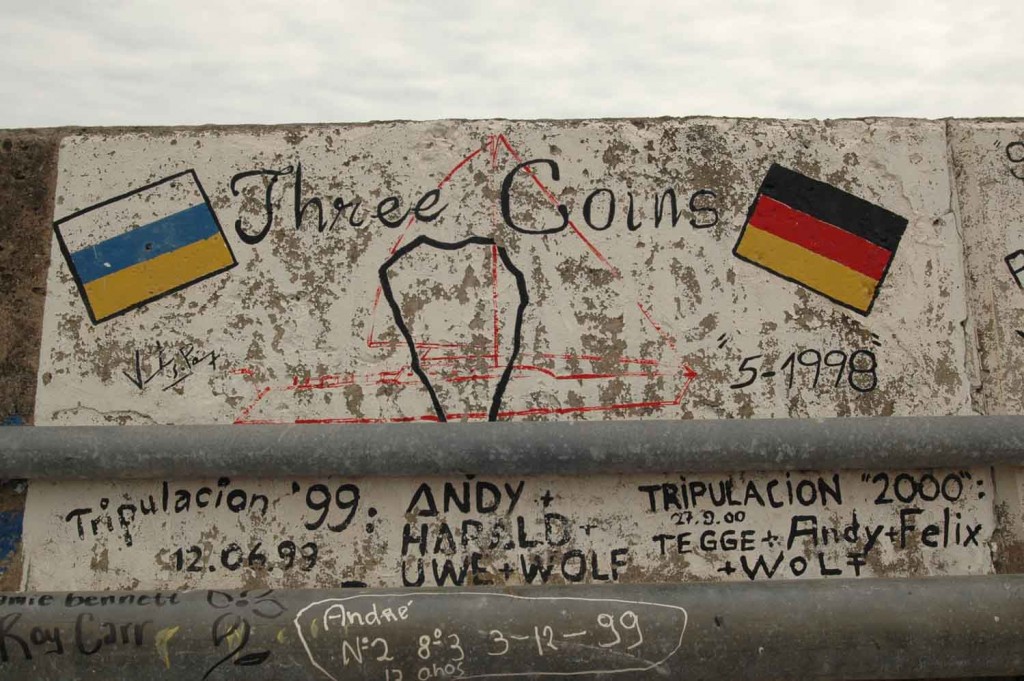 Three Coins
"5-1998"
Tripulacion '99:
12.06.99
ANDY +
HAROLD +
UWE + WOLF
TRIPULACION "2000":
27.9.00
TEGGE + Andy + Felix
+ WOLF
bennett
Roy Carr
André
Nº2 8º3 3-12-99
12 años